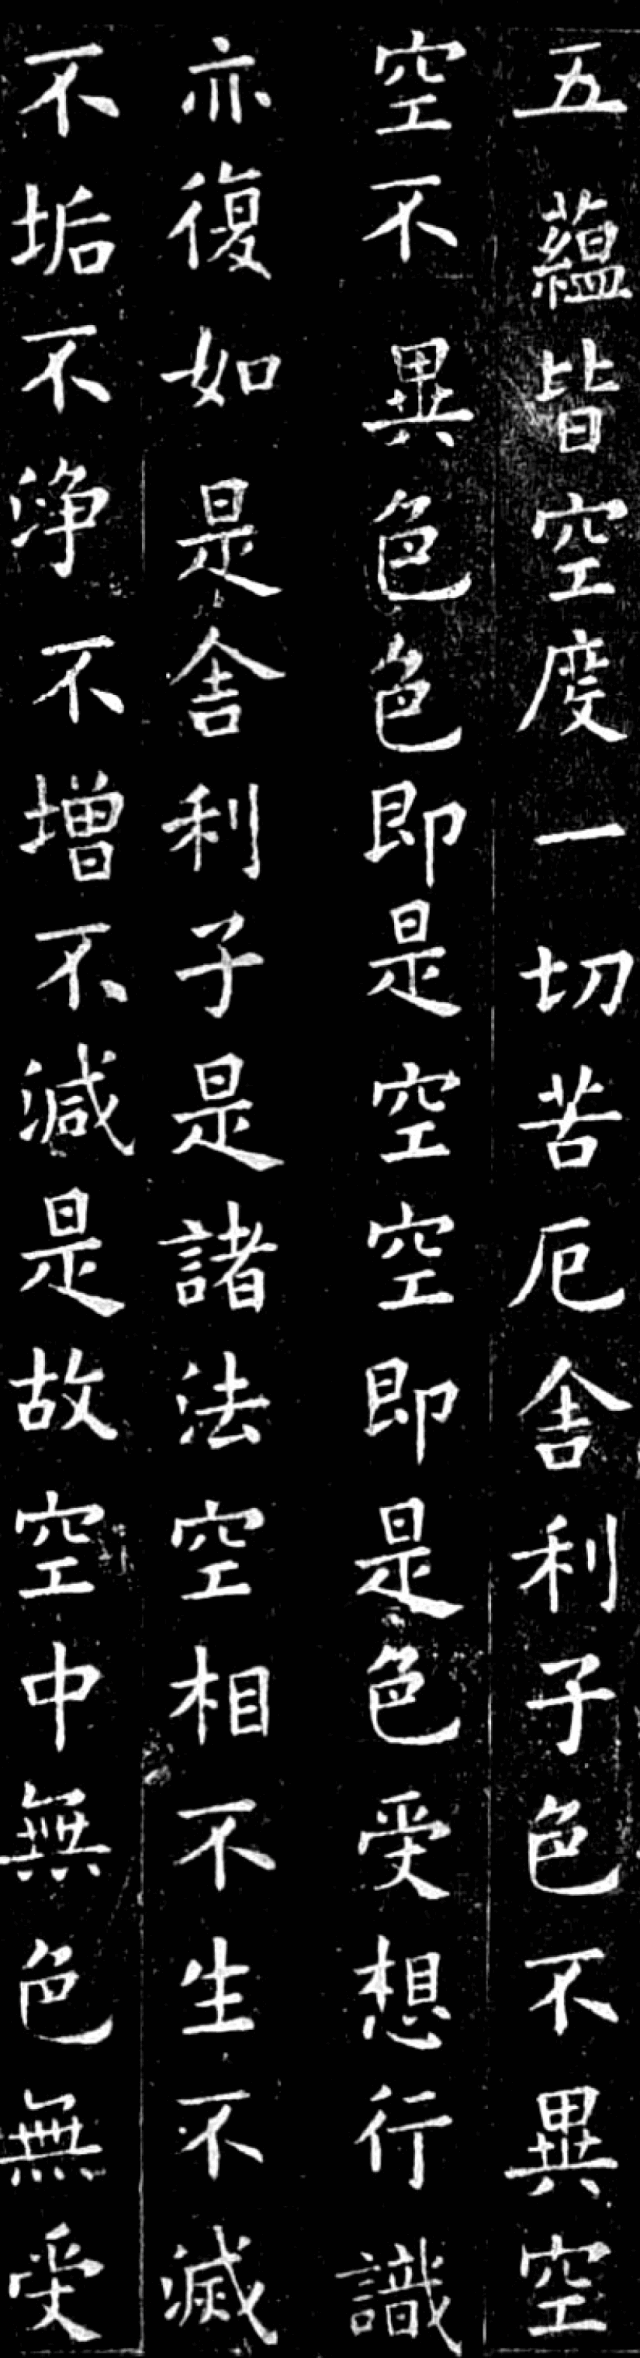 五蘊皆空度一切苦厄舍利子色不異空
空不異色色即是空空即是色受想行識
亦復如是舍利子是諸法空相不生不滅
不垢不淨不增不減是故空中無色無受